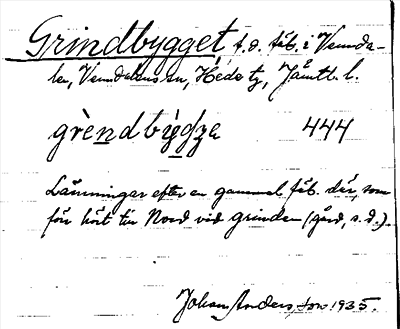 Grindbygget f.d. fäb. i Vemda-
len, Vemdalens sn, Hede tg, Jämtl. l.
grèndby̆dza 444
Lämningar efter en gammal fäb. där, som
förr hört till Nord vid grinden (gård, s.d.).
Johan Andersson 1935.